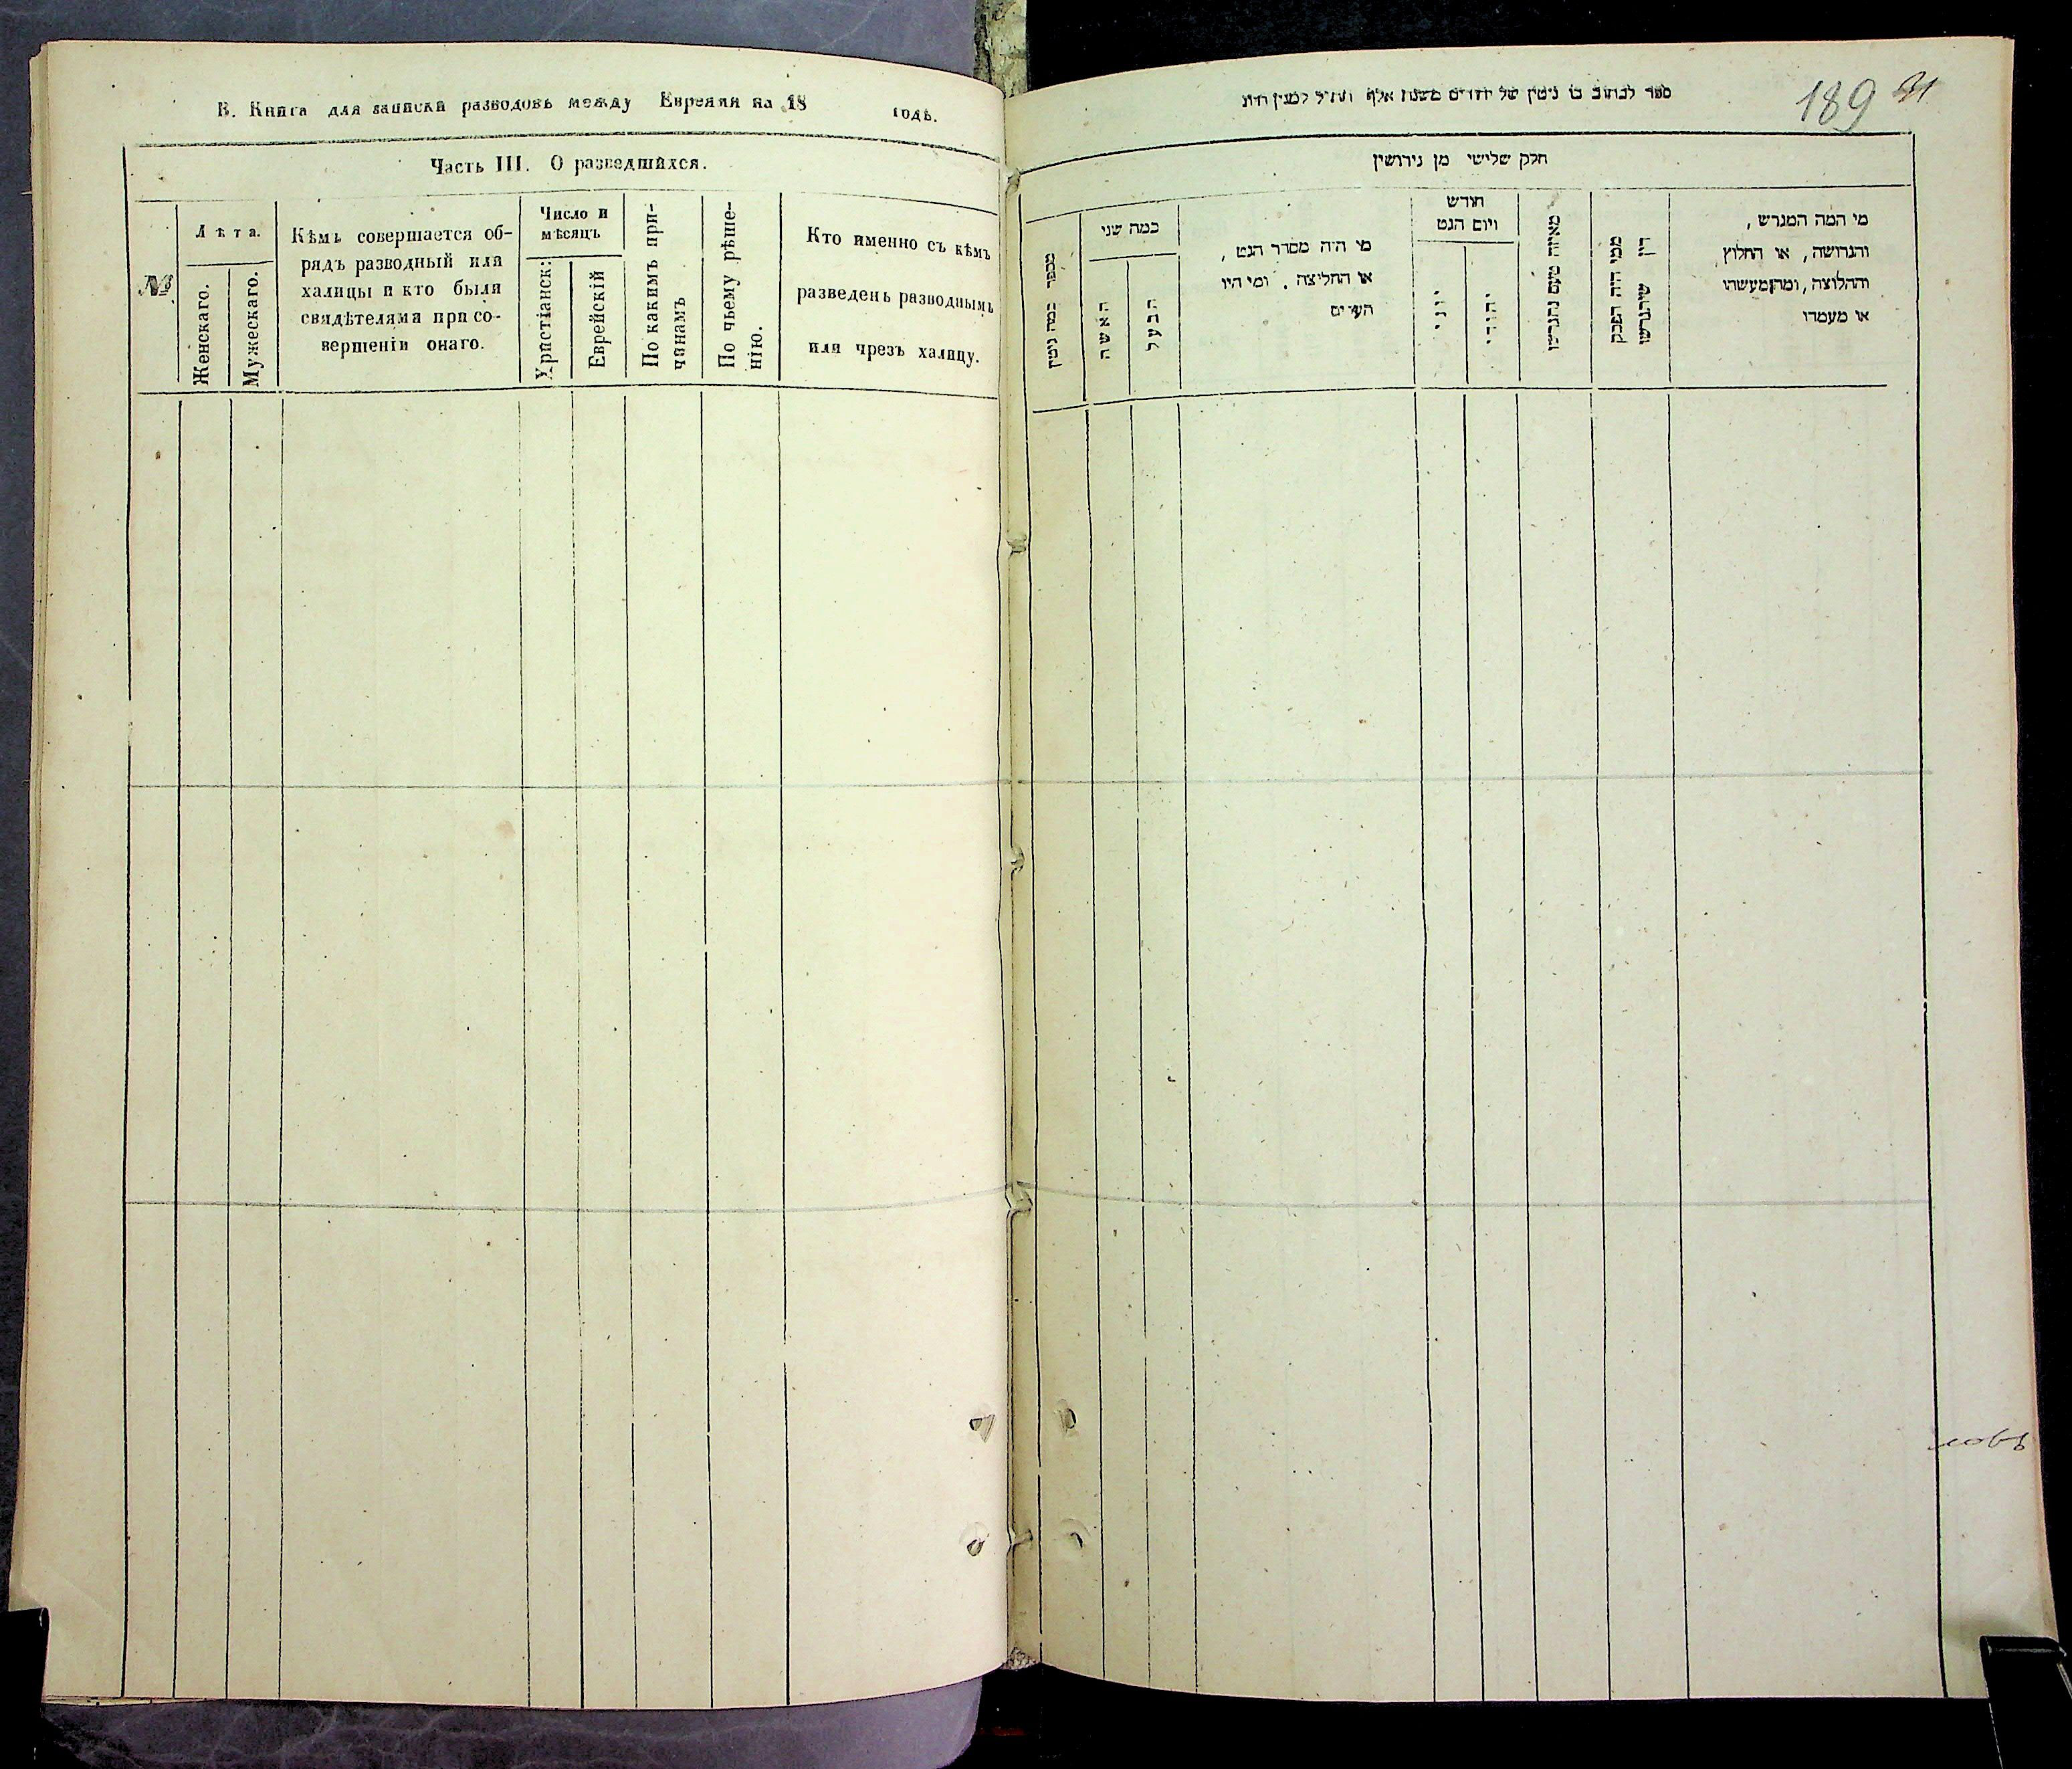 В. Книга для записки разводовъ между Евреями на 18 годъ.
Часть III. О разведшихся.
№
Лѣта.
Женскаго.
Мужескаго.
Кѣмъ совершается об-
рядъ разводный или
халицы и кто были
свидѣтелями при со-
вершеніи онаго.
Число и
мѣсяцъ
Христіанск:
Еврейскій
По какимъ при-
чинамъ
По чьему рѣше-
нію.
Кто именно съ кѣмъ
разведенъ разводнымъ
или чрезъ халицу.
189
ספר לכתוב בו גיטין של יהודים משנת אלף
חלק שלישי מן גירושין
מספר כמה גיטין
כמה שני
האשה
הבעל
מי היה מסדר הגט,
או החליצה, ומי היו
העדים
חודש
ויום הגט
יוני
יהודי
מאיזה טעם נתגרשו
ממי היה הפסק
דין שיתגרשו
מי המה המגרש,
והגרושה, או החלוץ
והחלוצה, ומה מעשהו
או מעמדו
ловъ